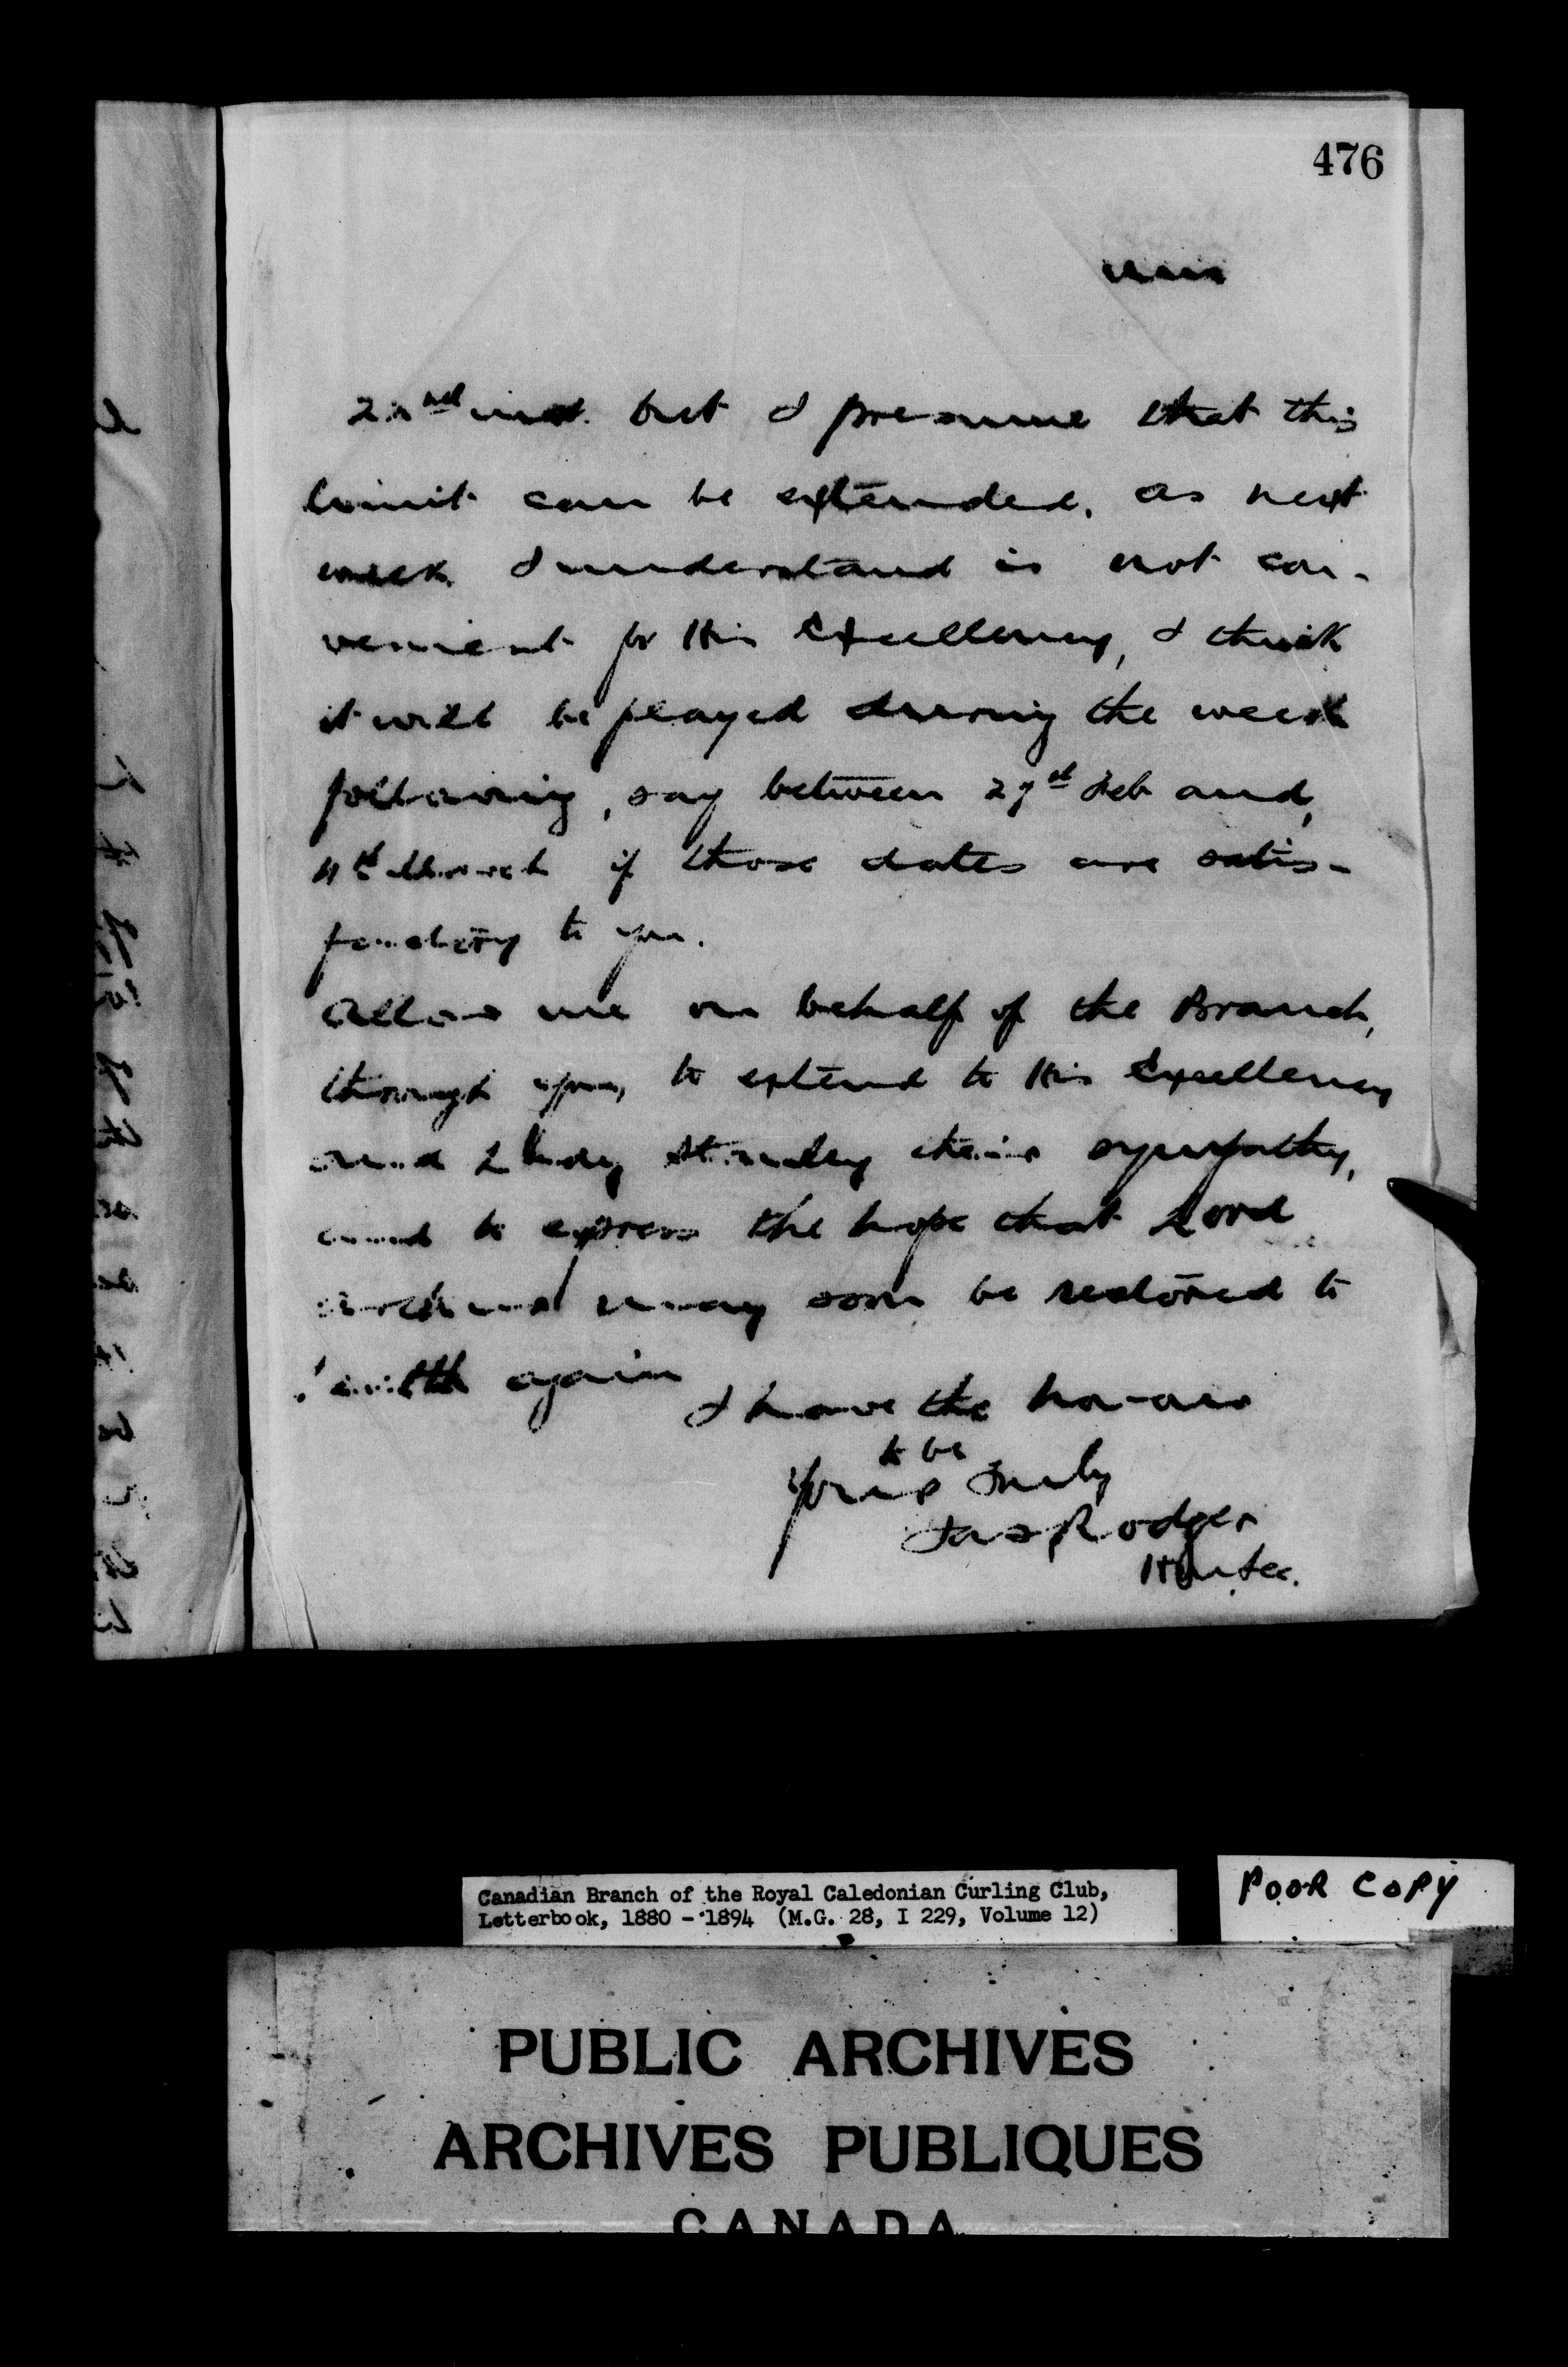 476
22nd inst. but I presume that this
limit can be extended, as next
week I understand is not con-
venient for His Excellency, I think
it will be played during the week
following, say between 29th Feb and
4th March if those dates are satis-
factory to you.
Allow me on behalf of the Branch,
through you, to extend to His Excellency
and Lady Stanley their sympathy,
and to express the hope that Lord
may soon be restored to
health again
I have the honour
to be
Yours Truly
Jas Rodger
Hon Sec.
Canadian Branch of the Royal Caledonian Curling Club,
Letterbook, 1880 - 1894 (M.G. 28, I 229, Volume 12)
POOR COPY
PUBLIC ARCHIVES
ARCHIVES PUBLIQUES
CANADA